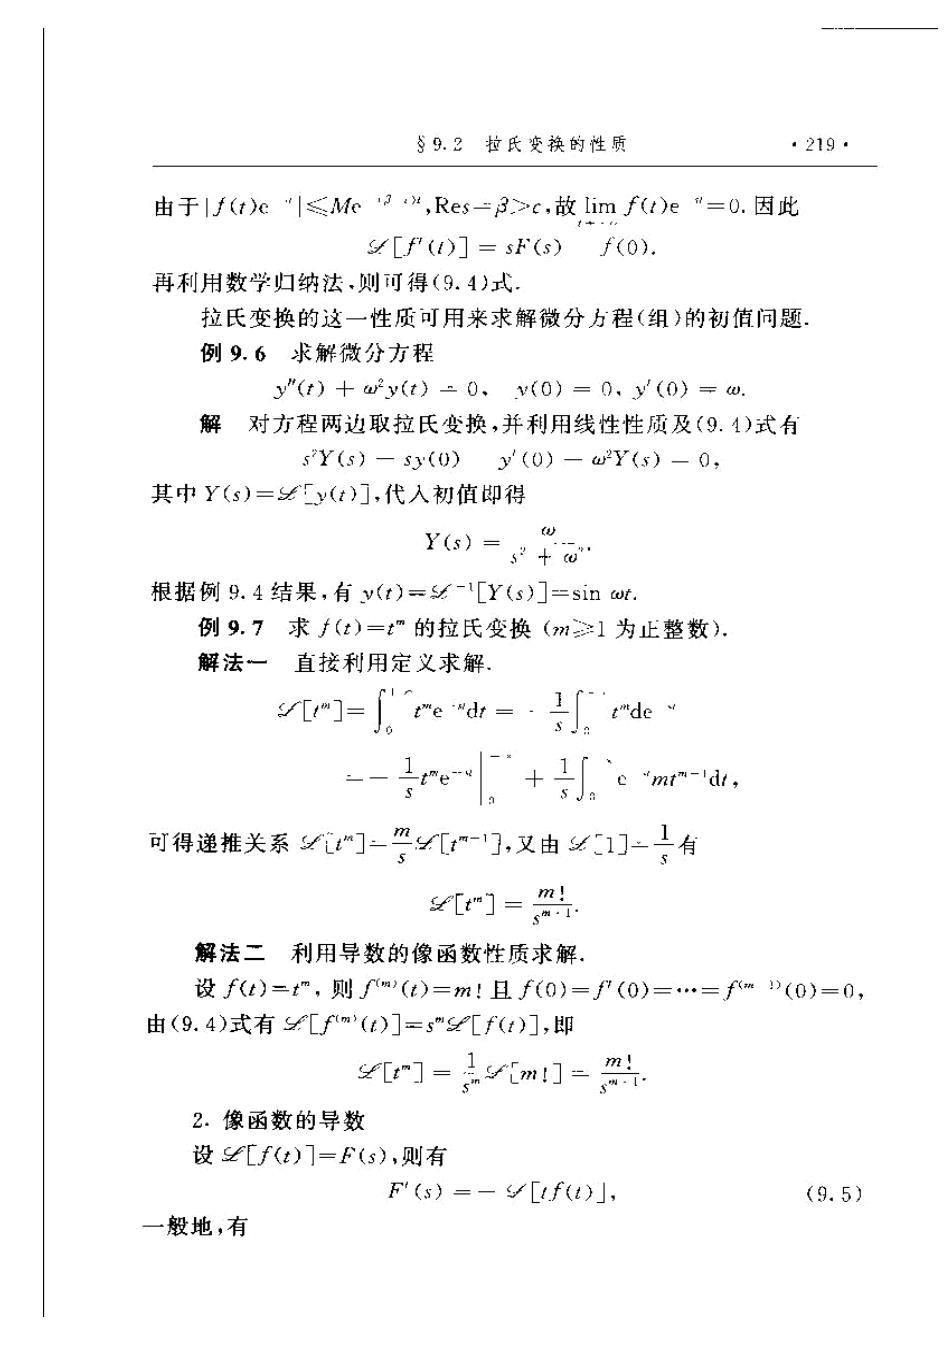 §9.2 拉氏变换的性质 ·219·
由于|f(t)e^{-st}|≤Me^{-(β-c)t},Res=β>c,故 lim_{t→+∞} f(t)e^{-st}=0.因此
ℒ[f′(t)] = sF(s) − f(0).
再利用数学归纳法,则可得(9.4)式.
拉氏变换的这一性质可用来求解微分方程(组)的初值问题.
例 9.6 求解微分方程
y″(t) + ω²y(t) = 0, y(0) = 0, y′(0) = ω.
解 对方程两边取拉氏变换,并利用线性性质及(9.4)式有
s²Y(s) − sy(0) − y′(0) − ω²Y(s) = 0,
其中 Y(s)=ℒ[y(t)],代入初值即得
Y(s) = ω/(s² + ω²).
根据例 9.4 结果,有 y(t)=ℒ⁻¹[Y(s)]=sin ωt.
例 9.7 求 f(t)=t^m 的拉氏变换 (m≥1 为正整数).
解法一 直接利用定义求解.
ℒ[t^m]=∫_0^{+∞} t^m e^{-st}dt = −(1/s)∫_0^{+∞} t^m de^{-st}
=−(1/s)t^m e^{-st}|_0^{+∞} + (1/s)∫_0^{+∞} e^{-st}mt^{m-1}dt,
可得递推关系 ℒ[t^m]=(m/s)ℒ[t^{m-1}],又由 ℒ[1]=1/s 有
ℒ[t^m] = m!/s^{m+1}.
解法二 利用导数的像函数性质求解.
设 f(t)=t^m, 则 f^{(m)}(t)=m! 且 f(0)=f′(0)=⋯=f^{(m-1)}(0)=0,
由(9.4)式有 ℒ[f^{(m)}(t)]=s^mℒ[f(t)],即
ℒ[t^m] = (1/s^m)ℒ[m!] = m!/s^{m+1}.
2. 像函数的导数
设 ℒ[f(t)]=F(s),则有
F′(s) = − ℒ[tf(t)], (9.5)
一般地,有